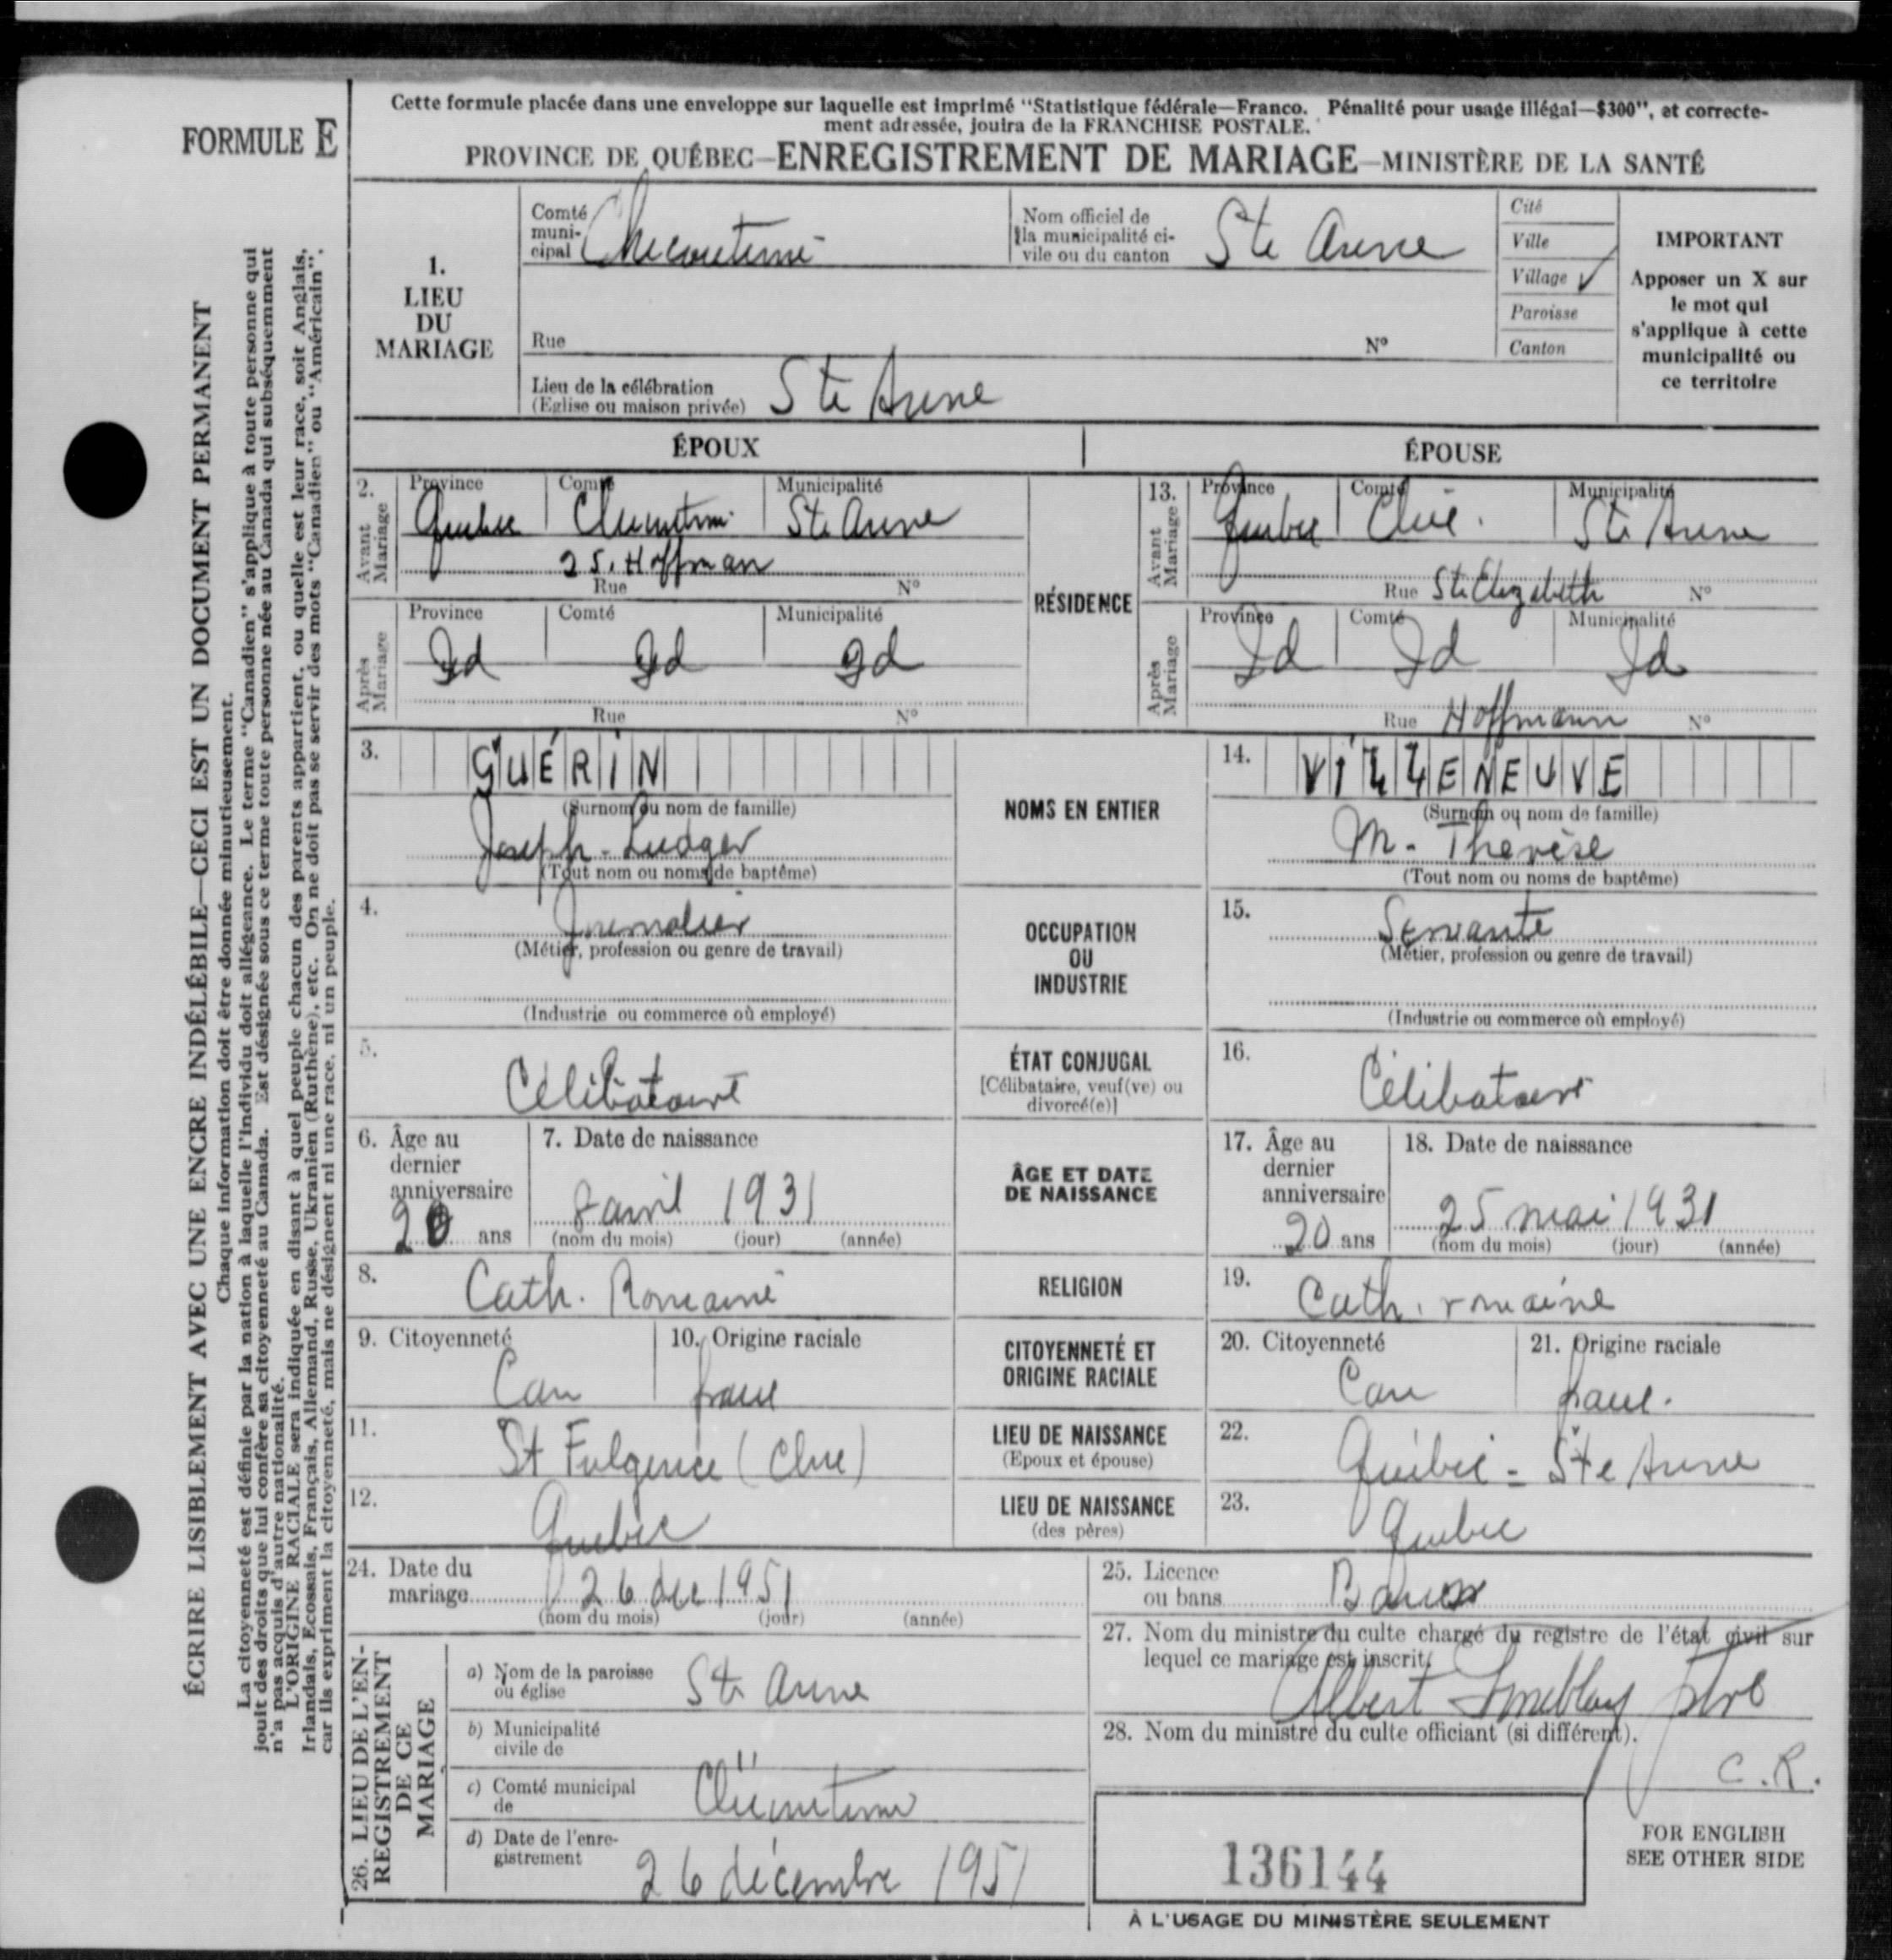 Cette formule placée dans une enveloppe sur laquelle est imprimé "Statistique fédérale—Franco. Pénalité pour usage illégal—$300", et correcte-
ment adressée, jouira de la FRANCHISE POSTALE.
FORMULE E
PROVINCE DE QUÉBEC—ENREGISTREMENT DE MARIAGE—MINISTÈRE DE LA SANTÉ
ÉCRIRE LISIBLEMENT AVEC UNE ENCRE INDÉLÉBILE—CECI EST UN DOCUMENT PERMANENT
Chaque information doit être donnée minutieusement.
La citoyenneté est définie par la nation à laquelle l'individu doit allégeance. Le terme "Canadien" s'applique à toute personne qui
jouit des droits que lui confère sa citoyenneté au Canada. Est désignée sous ce terme toute personne née au Canada qui subséquemment
n'a pas acquis d'autre nationalité.
L'ORIGINE RACIALE sera indiquée en disant à quel peuple chacun des parents appartient, ou quelle est leur race, soit Anglais,
Irlandais, Ecossais, Français, Allemand, Russe, Ukranien (Ruthène), etc. On ne doit pas se servir des mots "Canadien" ou "Américain",
car ils expriment la citoyenneté, mais ne désignent ni une race, ni un peuple.
1. LIEU DU MARIAGE
Comté municipal Chicoutimi
Nom officiel de la municipalité civile ou du canton Ste Anne
Cité
Ville
Village ✓
Paroisse
Canton
IMPORTANT
Apposer un X sur
le mot qui
s'applique à cette
municipalité ou
ce territoire
Rue Nº
Lieu de la célébration
(Eglise ou maison privée) Ste Anne
ÉPOUX ÉPOUSE
RÉSIDENCE
2. Avant Mariage
Province Comté Municipalité
Quebec Chicoutimi Ste Anne
25. Hoffman
Rue Nº
Après Mariage
Province Comté Municipalité
Id Id Id
Rue Nº
13. Avant Mariage
Province Comté Municipalité
Quebec Chic. Ste Anne
Rue Ste Elizabeth Nº
Après Mariage
Province Comté Municipalité
Id Id Id
Rue Hoffmann Nº
3. GUÉRIN NOMS EN ENTIER 14. VILLENEUVE
(Surnom ou nom de famille) (Surnom ou nom de famille)
Joseph-Ludger M. Thérèse
(Tout nom ou noms de baptême) (Tout nom ou noms de baptême)
4. Journalier OCCUPATION OU INDUSTRIE 15. Servante
(Métier, profession ou genre de travail) (Métier, profession ou genre de travail)
(Industrie ou commerce où employé) (Industrie ou commerce où employé)
5. Célibataire ÉTAT CONJUGAL 16. Célibataire
[Célibataire, veuf(ve) ou divorcé(e)]
6. Âge au dernier anniversaire 20 ans
7. Date de naissance 8 avril 1931
(nom du mois) (jour) (année)
ÂGE ET DATE DE NAISSANCE
17. Âge au dernier anniversaire 20 ans
18. Date de naissance 25 mai 1931
(nom du mois) (jour) (année)
8. Cath. Romaine RELIGION 19. Cath. romaine
9. Citoyenneté Can 10. Origine raciale franc
CITOYENNETÉ ET ORIGINE RACIALE
20. Citoyenneté Can 21. Origine raciale franc.
11. St Fulgence (Chic) LIEU DE NAISSANCE (Epoux et épouse) 22. Québec - Ste Anne
12. Quebec LIEU DE NAISSANCE (des pères) 23. Quebec
24. Date du mariage 26 dec 1951
(nom du mois) (jour) (année)
25. Licence ou bans Bans
26. LIEU DE L'ENREGISTREMENT DE CE MARIAGE
a) Nom de la paroisse ou église Ste Anne
b) Municipalité civile de "
c) Comté municipal de Chicoutimi
d) Date de l'enregistrement 26 décembre 1951
27. Nom du ministre du culte chargé du registre de l'état civil sur
lequel ce mariage est inscrit.
Albert Tremblay ptre
28. Nom du ministre du culte officiant (si différent).
C.R.
136144
FOR ENGLISH
SEE OTHER SIDE
À L'USAGE DU MINISTÈRE SEULEMENT